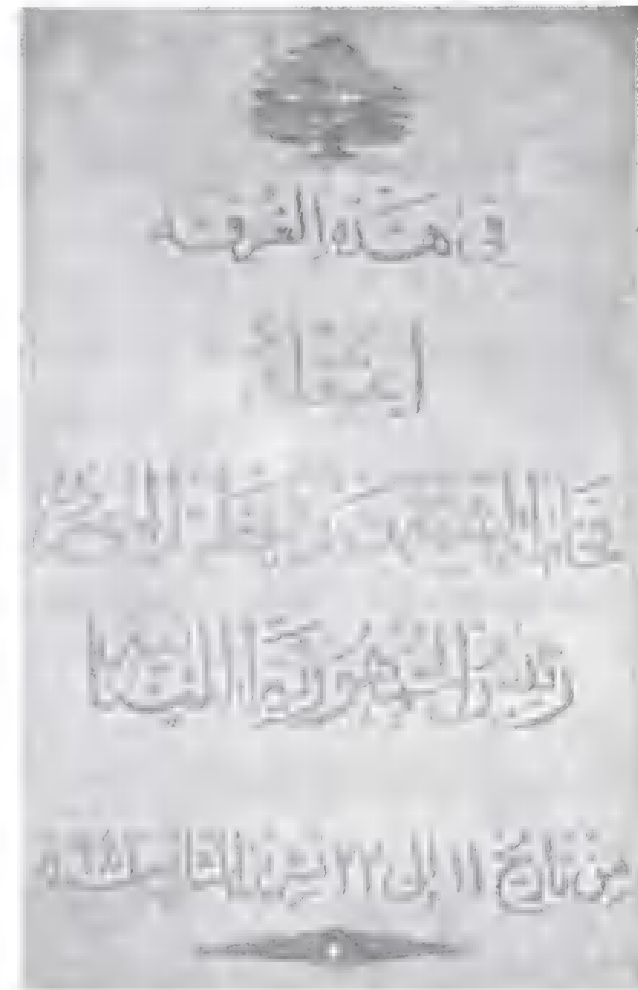 في هذه الغرفة
اعتقل
فخامة الشيخ الخوري
رئيس الجمهورية اللبنانية
من تاريخ ١١ إلى ٢٢ تشرين الثاني